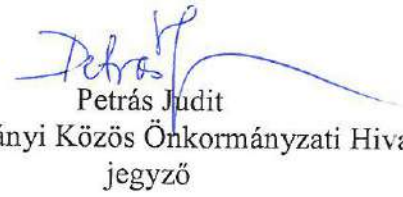 Petrás J
Petrás Judit
ányi Közös Önkormányzati Hiva
jegyző